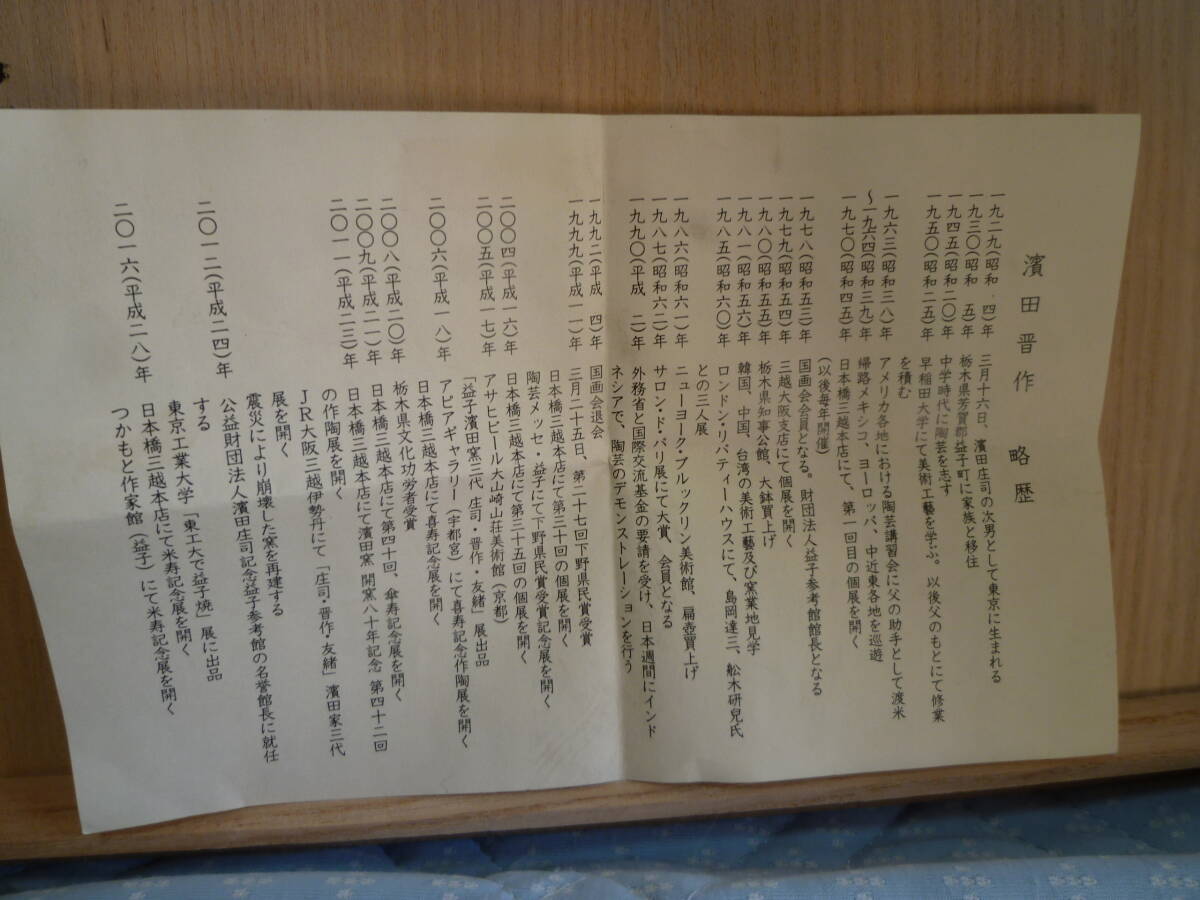 濱田晋作 略歴
一九二九(昭和 四)年 三月十六日、濱田庄司の次男として東京に生まれる
一九三〇(昭和 五)年 栃木県芳賀郡益子町に家族と移住
一九四五(昭和二〇)年 中学時代に陶芸を志す
一九五〇(昭和二五)年 早稲田大学にて美術工藝を学ぶ。以後父のもとにて修業
を積む
一九六三(昭和三八)年 アメリカ各地における陶芸講習会に父の助手として渡米
〜一九六四(昭和三九)年 帰路メキシコ、ヨーロッパ、中近東各地を巡遊
一九七〇(昭和四五)年 日本橋三越本店にて、第一回目の個展を開く
(以後毎年開催)
一九七八(昭和五三)年 国画会会員となる。財団法人益子参考館館長となる
一九七九(昭和五四)年 三越大阪支店にて個展を開く
一九八〇(昭和五五)年 栃木県知事公館、大鉢買上げ
一九八一(昭和五六)年 韓国、中国、台湾の美術工藝及び窯業地見学
一九八五(昭和六〇)年 ロンドン・リバティーハウスにて、島岡達三、舩木研兒氏
との三人展
一九八六(昭和六一)年 ニューヨーク・ブルックリン美術館、扁壺買上げ
一九八七(昭和六二)年 サロン・ド・パリ展にて大賞、会員となる
一九九〇(平成 二)年 外務省と国際交流基金の要請を受け、日本週間にインド
ネシアで、陶芸のデモンストレーションを行う
一九九二(平成 四)年 国画会退会
一九九九(平成一一)年 三月二十五日、第二十七回下野県民賞受賞
日本橋三越本店にて第三十回の個展を開く
陶芸メッセ・益子にて下野県民賞受賞記念展を開く
二〇〇四(平成一六)年 日本橋三越本店にて第三十五回の個展を開く
二〇〇五(平成一七)年 アサヒビール大山崎山荘美術館(京都)
「益子濱田窯三代 庄司・晋作・友緒」展出品
アピアギャラリー(宇都宮)にて喜寿記念作陶展を開く
二〇〇六(平成一八)年 日本橋三越本店にて喜寿記念展を開く
栃木県文化功労者受賞
二〇〇八(平成二〇)年 日本橋三越本店にて第四十回、傘寿記念展を開く
二〇〇九(平成二一)年 日本橋三越本店にて濱田窯 開窯八十年記念 第四十二回
の作陶展を開く
二〇一一(平成二三)年 JR大阪三越伊勢丹にて「庄司・晋作・友緒」濱田家三代
展を開く
震災により崩壊した窯を再建する
公益財団法人濱田庄司記念益子参考館の名誉館長に就任
する
二〇一二(平成二四)年 東京工業大学「東工大で益子焼」展に出品
日本橋三越本店にて米寿記念展を開く
二〇一六(平成二八)年 つかもと作家館(益子)にて米寿記念展を開く